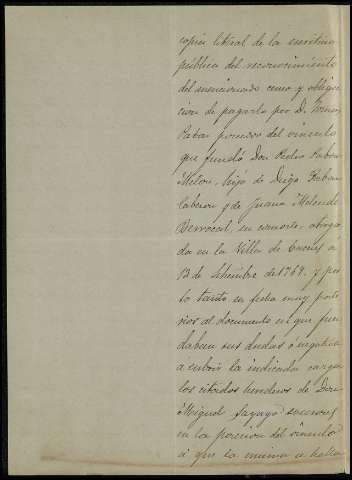 copia literal de la escritura
pública del reconocimiento
del mencionado censo y obliga-
cion de pagarlo por D.
poseedor del vínculo
que fundó Don Pedro
hijo de Diego
y de Juana
su consorte, otorga
da en la Villa de á
13 de Setiembre de 1769. y por
lo tanto en fecha muy poste
rior al documento en que fun
daban sus dudas ó negativa
a cubrir la indicada carga
los citados herederos de Don
Miguel Sayago sucesores
en la porcion del vínculo
á que la misma